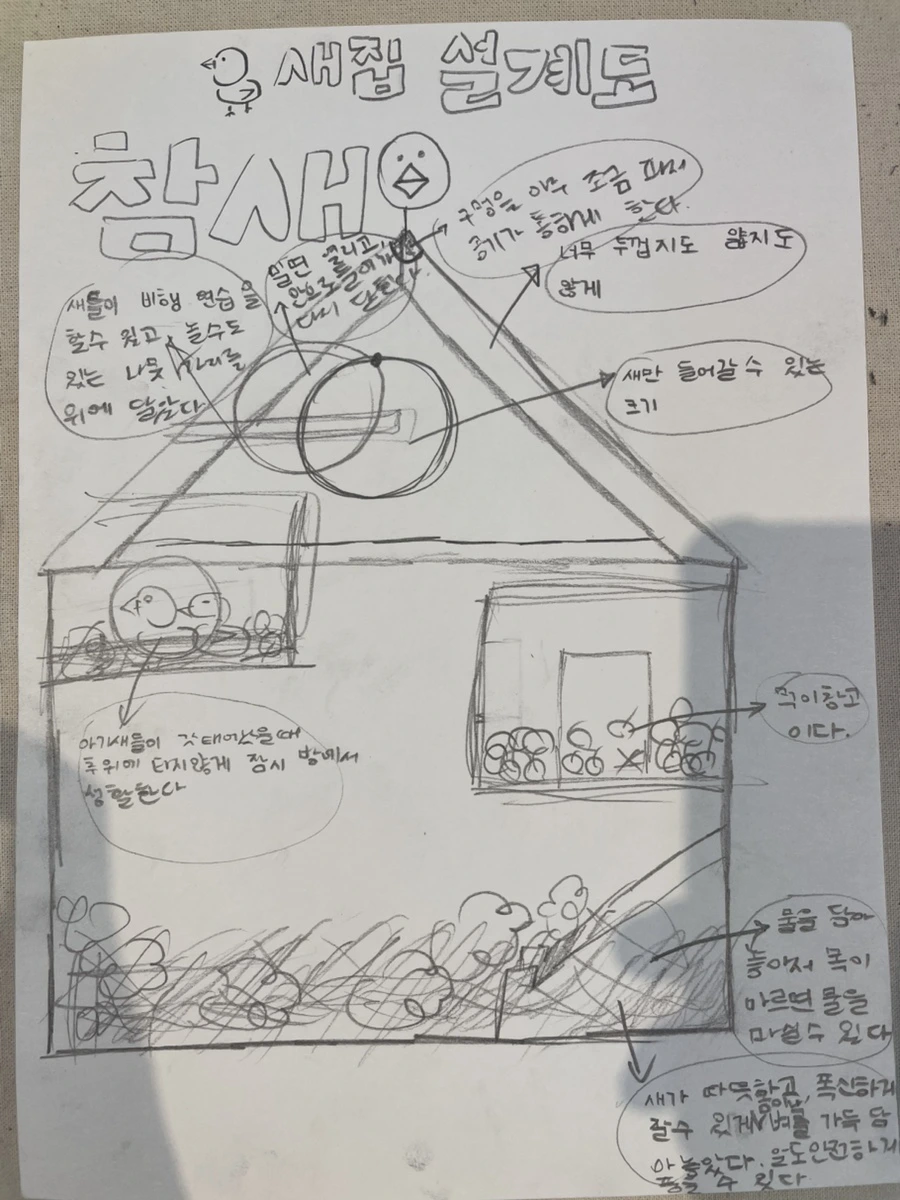 새집 설계도
참새
구멍을 아주 조금 파서
공기가 통하게 한다.
너무 두껍지도 얇지도
않게
밀면 열리고,
안으로 들어개
다시 닫힌다
새들이 비행 연습을
할수 있고, 놀수도
있는 나뭇가리를
위에 달았다
새만 들어갈 수 있는
크기
먹이창고
이다.
아기새들이 갓 태어났을때
추위에 타지않게 잠시 방에서
생활한다
물을 담아
놓아서 목이
마르면 물을
마실수 있다
새가 따뜻하고, 폭신하게
잘수 있게 벼를 가득 담
아 놓았다. 알도안전하게
품을 수 있다